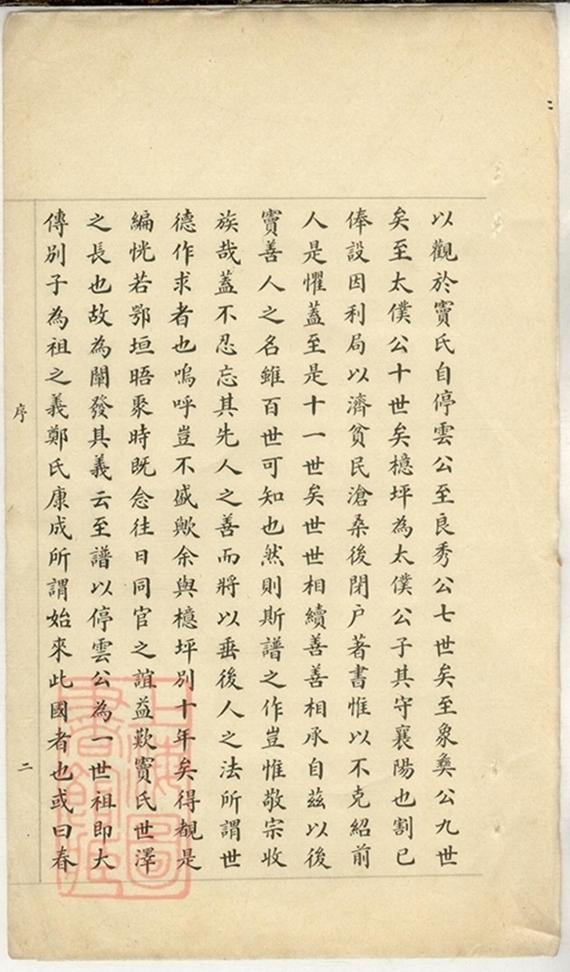 以觀於竇氏自停雲公至良秀公七世矣至象彝公九世
矣至太僕公十世矣檍坪為太僕公子其守襄陽也割已
俸設因利局以濟貧民滄桑後閉户著書惟以不克紹前
人是懼蓋至是十一世矣世世相續善善相承自茲以後
竇善人之名雖百世可知也然則斯譜之作豈惟敬宗收
族哉蓋不忍忘其先人之善而將以垂後人之法所謂世
德作求者也嗚呼豈不盛歟余與檍坪別十年矣得覩是
編恍若鄂垣晤聚時既念往日同官之誼益歎竇氏世澤
之長也故為闡發其義云至譜以停雲公為一世祖即大
傳別子為祖之義鄭氏康成所謂始來此國者也或曰春
序
二
上海圖書館藏